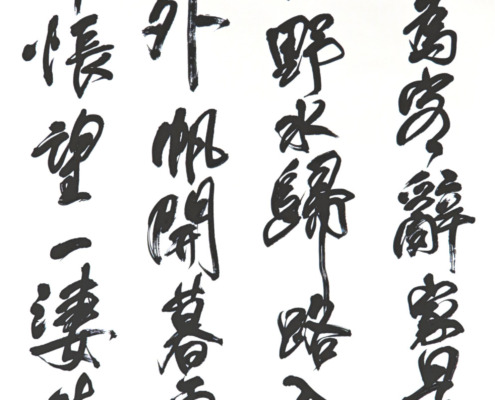 為客辭家
野水歸路
外帆開暮
悵望一淒